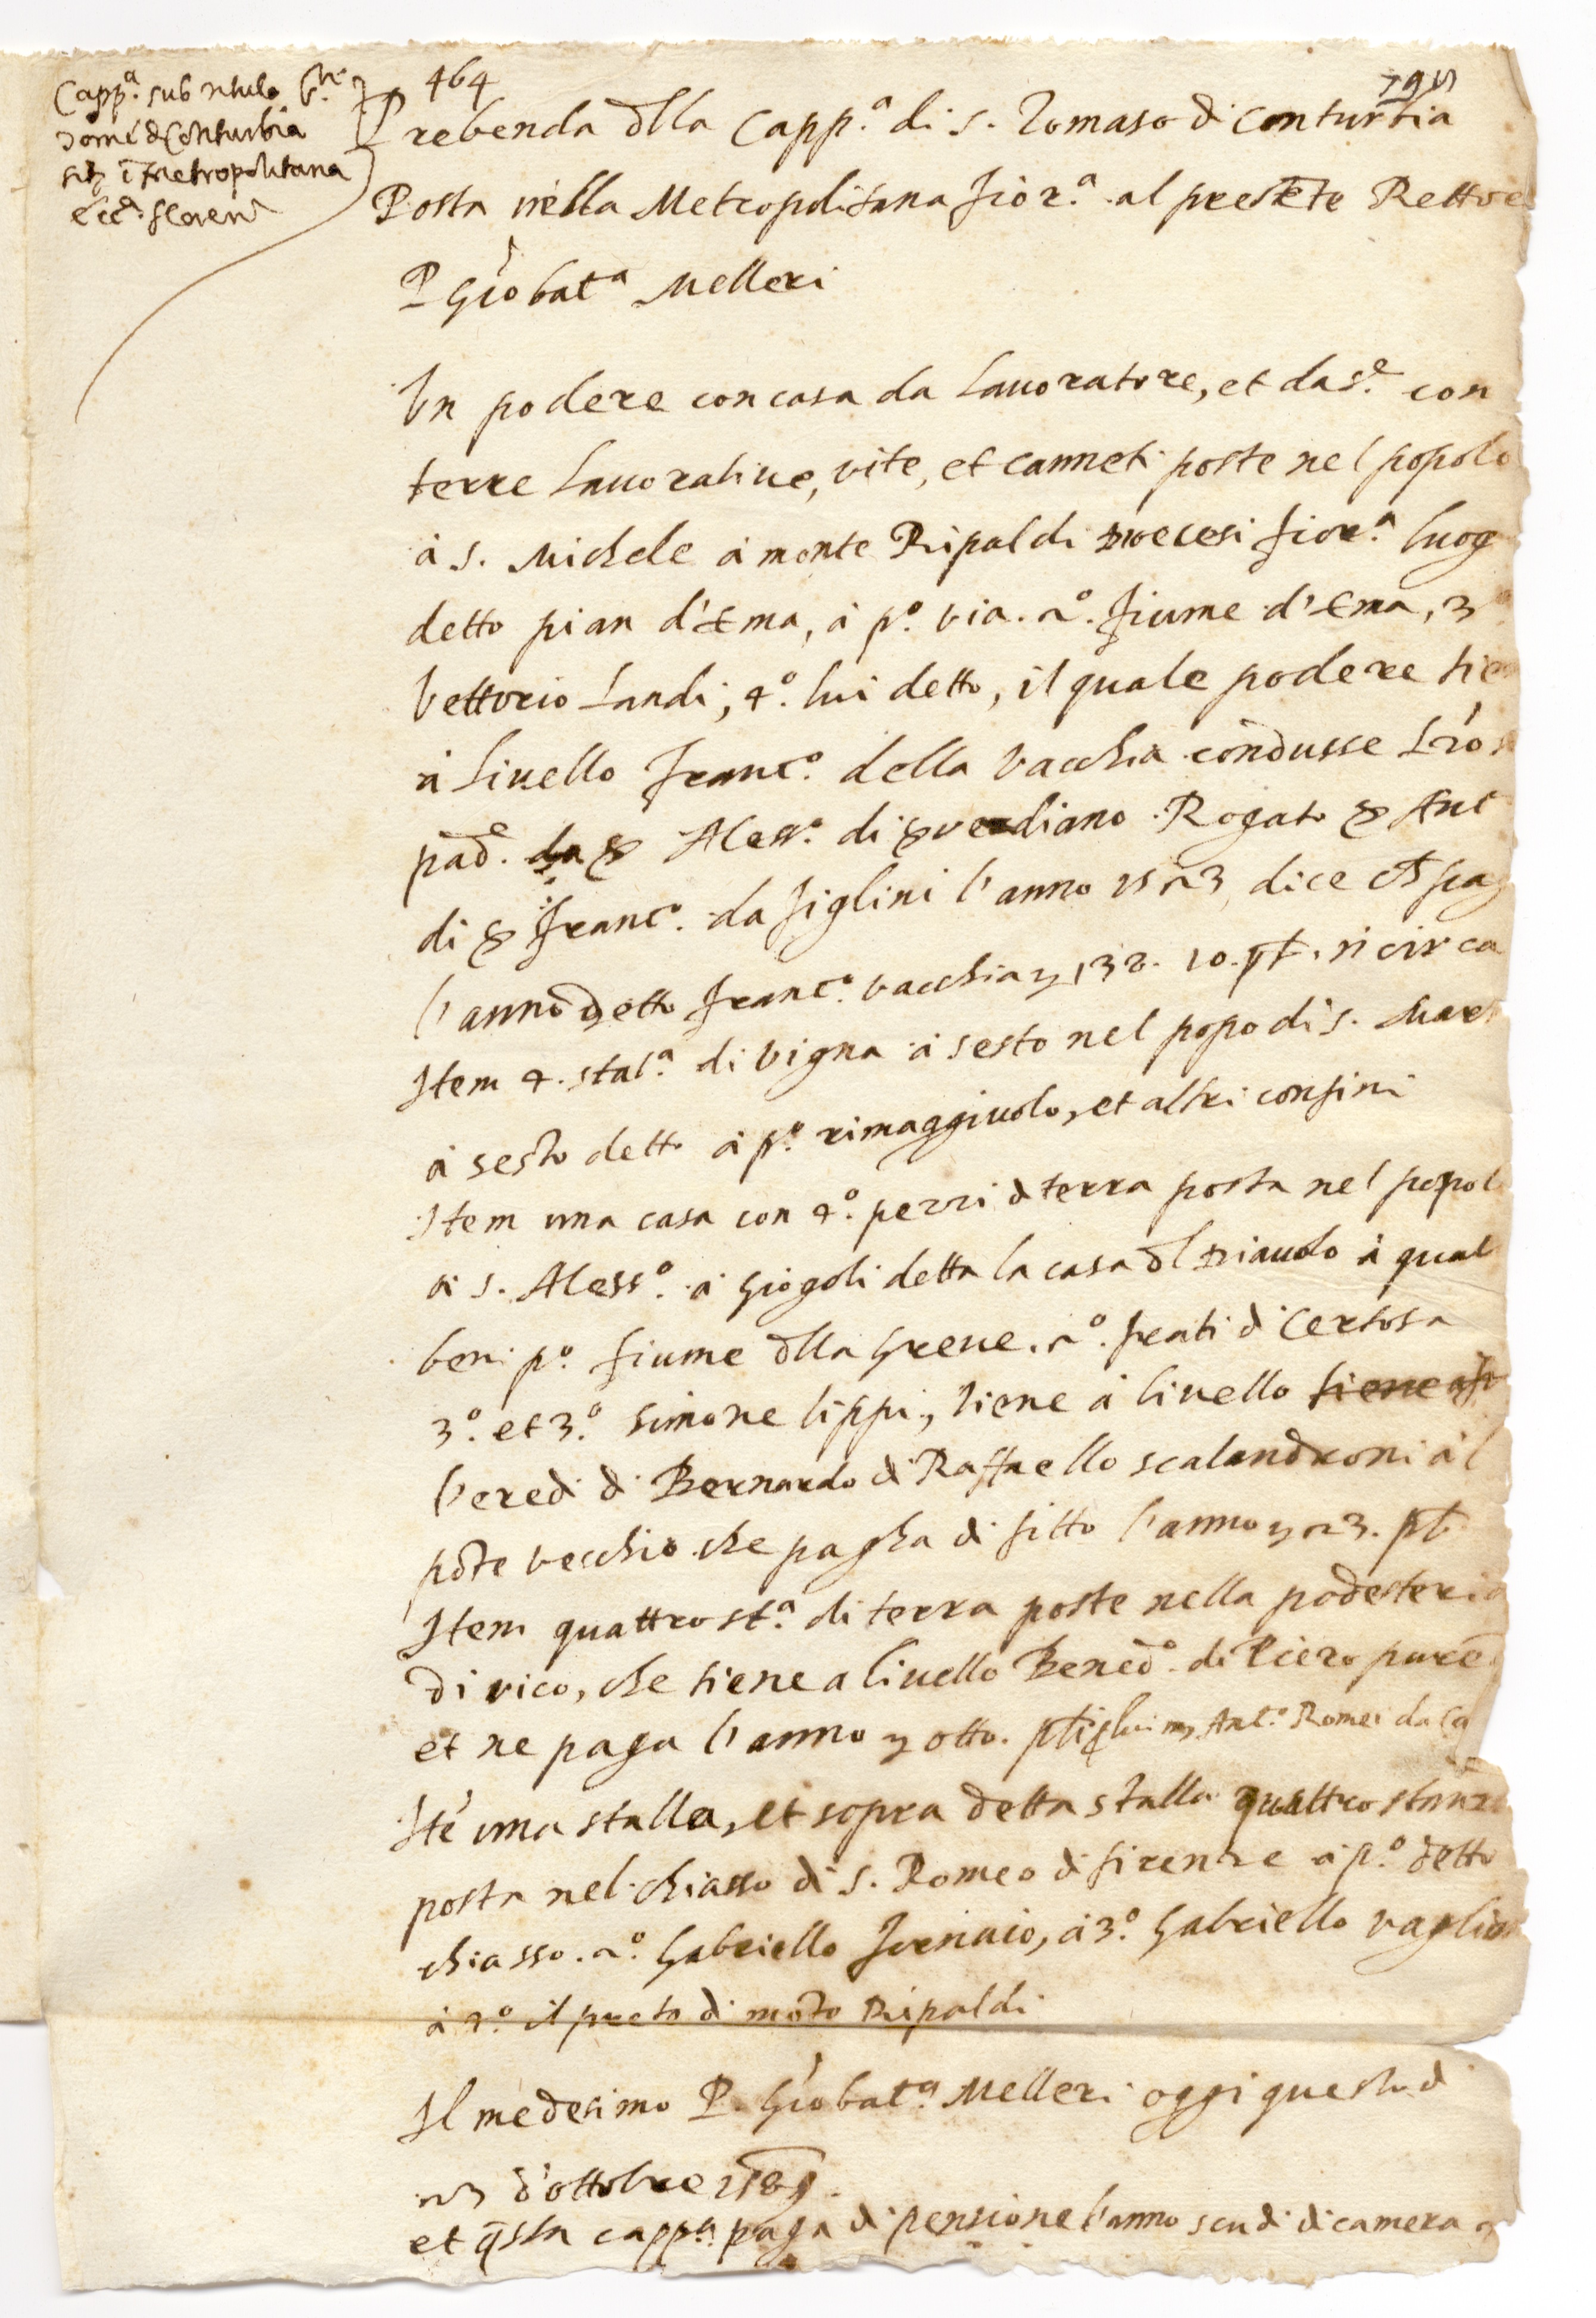 464
Capp.ª sub titulo
domi d Conturbia
sitª ī Metropolitana
ecc.ª floren
Prebenda dlla Capp.ª di s. Tomaso di Conturbia
Posta nella Metropolitana fior.ª al presēte Rettore
P Giobatª Melleri
Un podere con casa da lauoratore, et da s.e con
terre lauoratiue, vite, et canneti poste nel popolo
à s. Michele à monte Ripaldi Diocesi fior.ª luog
detto pian d'Ema, à p.º via. 2º. fiume d'Ema, 3º
Vettorio Landi, 4º. lui detto, il quale podere tien
à liuello Franc.º della Vacchia condusse
pad.e Aless.º di verdiano Rogato Ant
di Franc.º da figlini l'anno 1523 dice
l'anno detto Franc.º vacchia 132. 10. circa
Item 4. sta.ª di vigna à sesto nel popo di s. Mart
à sesto detto à p.º rimaggiuolo, et altri confini
Item una casa con 4º. pezzi d terra posta nel popol
à s. Aless.º à Giogoli detta la casa dl Diauolo à qual
beni p.º fiume dlla Greue. 2º. frati di Certosa
3º. et 3.º simone lippi, tiene à liuello tiene
l'eredi di Bernardo di Raffaello scalandroni àl
pōte vecchio che pagha di fitto l'anno 23.
Item quattro st.ª di terra poste nella podesteria
di vico, che tiene a liuello Bened.º di Piero
et ne paga l'anno otto. Ant.º Romei da
Itē una stalla, et sopra detta stalla quattro stanze
posta nel chiasso di s. Romeo di firenze à p.º detto
chiasso. 2º. Gabriello fornaio, à 3º. Gabriello
à 4º. il prete di mōte Ripaldi
Il medesimo P. Giobat.ª Melleri oggi questo dì
23 d'ottobre
et q̄sta capp.ª paga di pensione l'anno scudi di camera